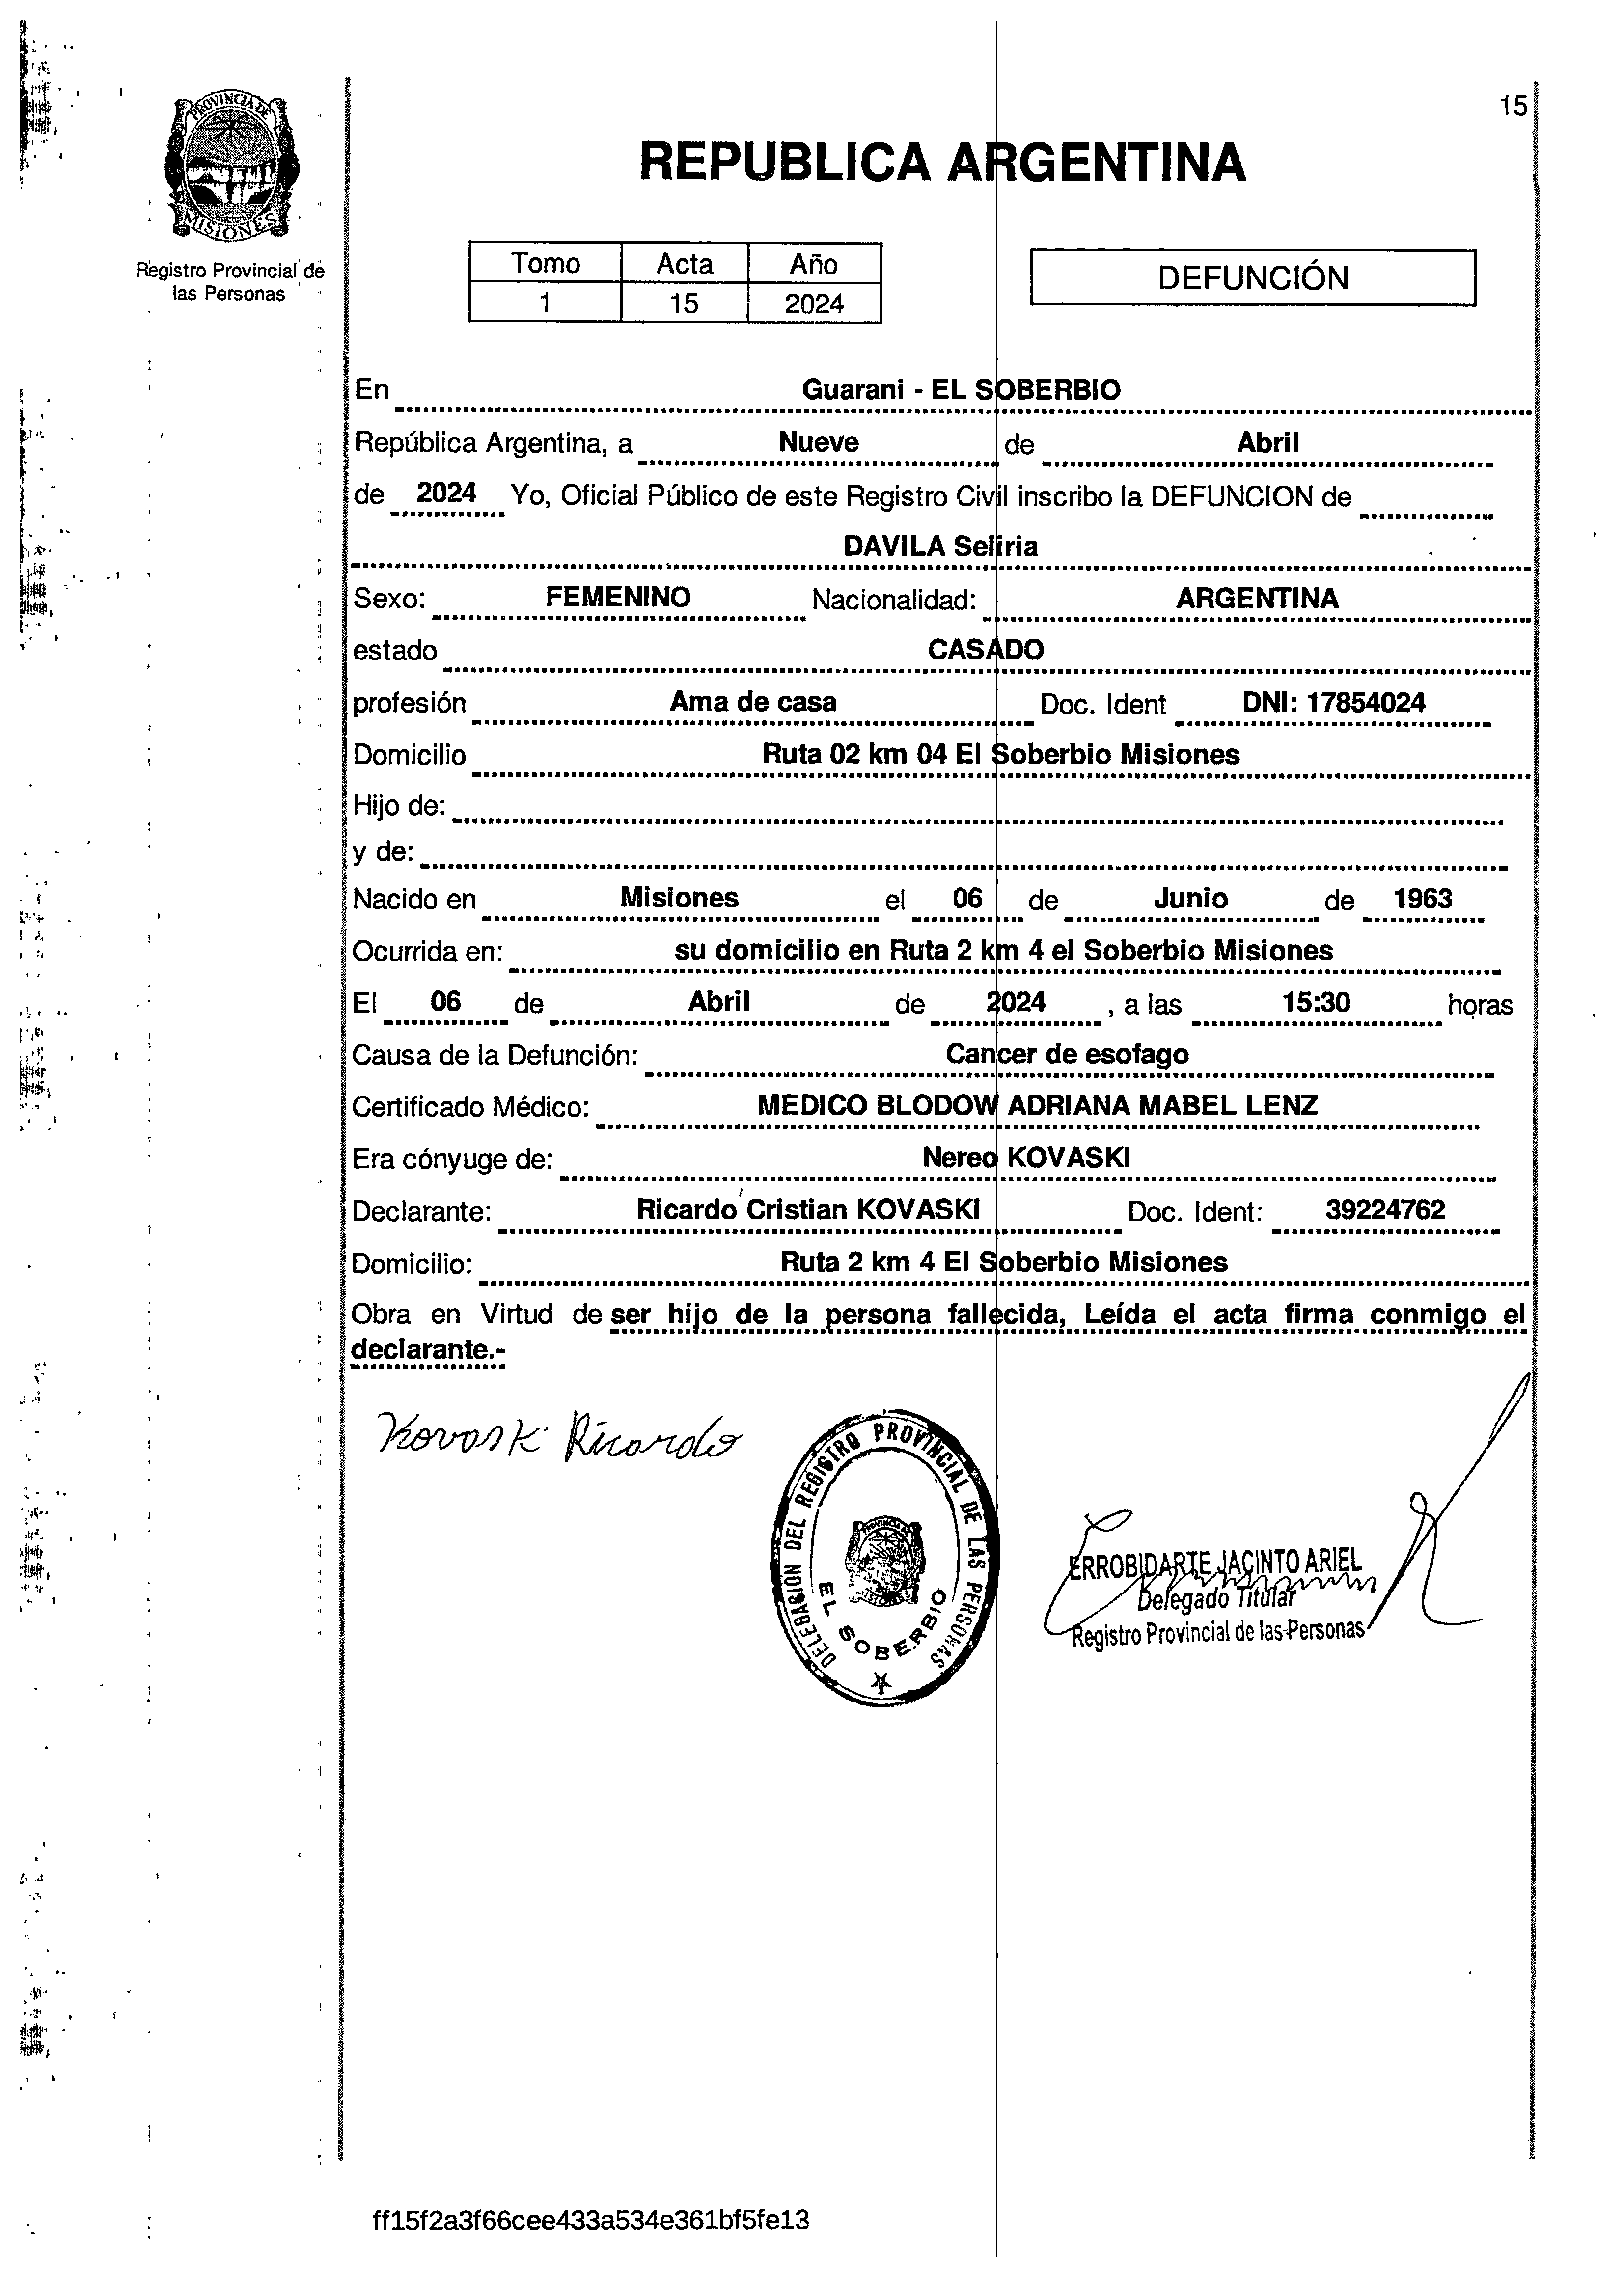 15
PROVINCIA DE
MISIONES
Registro Provincial de
las Personas
REPUBLICA ARGENTINA
Tomo Acta Año
1 15 2024
DEFUNCIÓN
En Guarani - EL SOBERBIO
República Argentina, a Nueve de Abril
de 2024 Yo, Oficial Público de este Registro Civil inscribo la DEFUNCION de
DAVILA Seliria
Sexo: FEMENINO Nacionalidad: ARGENTINA
estado CASADO
profesión Ama de casa Doc. Ident DNI: 17854024
Domicilio Ruta 02 km 04 El Soberbio Misiones
Hijo de:
y de:
Nacido en Misiones el 06 de Junio de 1963
Ocurrida en: su domicilio en Ruta 2 km 4 el Soberbio Misiones
El 06 de Abril de 2024 , a las 15:30 horas
Causa de la Defunción: Cancer de esofago
Certificado Médico: MEDICO BLODOW ADRIANA MABEL LENZ
Era cónyuge de: Nereo KOVASKI
Declarante: Ricardo Cristian KOVASKI Doc. Ident: 39224762
Domicilio: Ruta 2 km 4 El Soberbio Misiones
Obra en Virtud de ser hijo de la persona fallecida, Leída el acta firma conmigo el
declarante.-
Kovaski Ricardo
DELEGACION DEL REGISTRO PROVINCIAL DE LAS PERSONAS
PROVINCIA DE
MISIONES
EL SOBERBIO
ERROBIDARTE JACINTO ARIEL
Delegado Titular
Registro Provincial de las Personas
ff15f2a3f66cee433a534e361bf5fe13